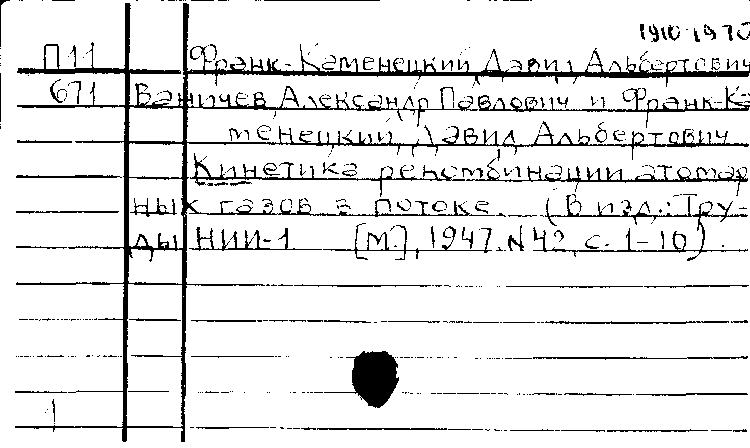 1910-1970
П11 Франк-Каменецкий, Давид Альбертович
671 Ваничев, Александр Павлович и Франк-Ка
менецкий, Давид Альбертович
Кинетика рекомбинации атомар
ных газов в потоке. (В изд.: Тру-
ды НИИ-1 [М.], 1947. N 42, с. 1-10).
1